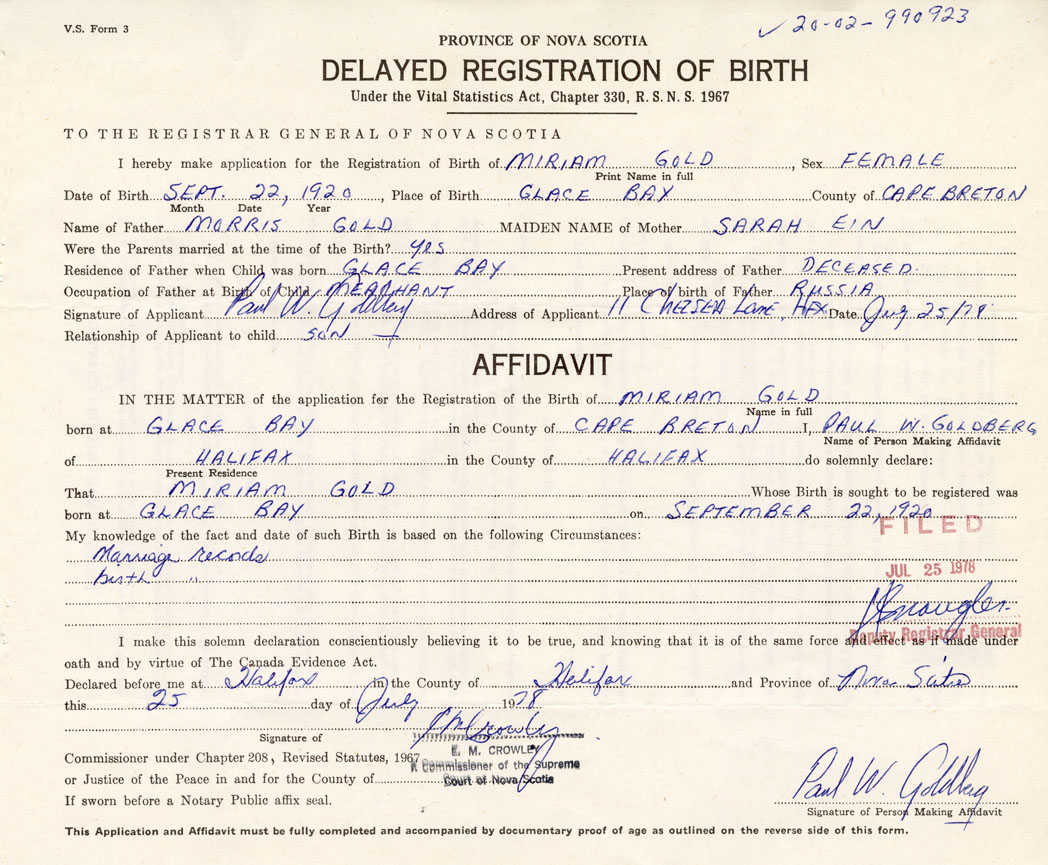 V.S. Form 3
✓ 20-02-990923
PROVINCE OF NOVA SCOTIA
DELAYED REGISTRATION OF BIRTH
Under the Vital Statistics Act, Chapter 330, R.S.N.S. 1967
TO THE REGISTRAR GENERAL OF NOVA SCOTIA
I hereby make application for the Registration of Birth of MIRIAM GOLD, Sex FEMALE
Print Name in full
Date of Birth SEPT. 22, 1920, Place of Birth GLACE BAY County of CAPE BRETON
Month Date Year
Name of Father MORRIS GOLD MAIDEN NAME of Mother SARAH EIN
Were the Parents married at the time of the Birth? yes
Residence of Father when Child was born GLACE BAY Present address of Father DECEASED.
Occupation of Father at Birth of Child MERCHANT Place of birth of Father RUSSIA
Signature of Applicant Paul W. Goldberg Address of Applicant 11 CHELSEA Lane, HFX Date July 25/78
Relationship of Applicant to child SON
AFFIDAVIT
IN THE MATTER of the application for the Registration of the Birth of MIRIAM GOLD
Name in full
born at GLACE BAY in the County of CAPE BRETON I, PAUL W. GOLDBERG
Name of Person Making Affidavit
of HALIFAX in the County of HALIFAX do solemnly declare:
Present Residence
That MIRIAM GOLD Whose Birth is sought to be registered was
born at GLACE BAY on SEPTEMBER 22, 1920
FILED
My knowledge of the fact and date of such Birth is based on the following Circumstances:
Marriage records
birth "
JUL 25 1978
Deputy Registrar General
I make this solemn declaration conscientiously believing it to be true, and knowing that it is of the same force and effect as if made under
oath and by virtue of The Canada Evidence Act.
Declared before me at Halifax in the County of Halifax and Province of Nova Scotia
this 25 day of July 1978.
EM Crowley
Signature of
E. M. CROWLEY
Commissioner under Chapter 208, Revised Statutes, 1967
A Commissioner of the Supreme
or Justice of the Peace in and for the County of
Court of Nova Scotia
If sworn before a Notary Public affix seal.
Paul W. Goldberg
Signature of Person Making Affidavit
This Application and Affidavit must be fully completed and accompanied by documentary proof of age as outlined on the reverse side of this form.